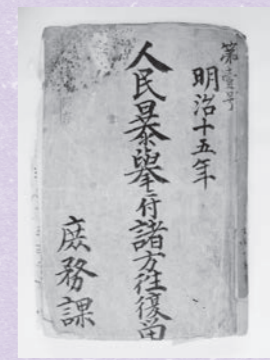 第壹号
明治十五年
人民暴挙ニ付諸方往復留
庶務課